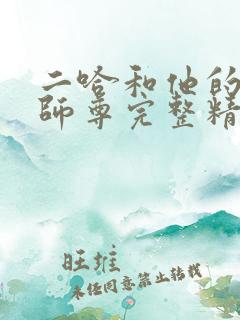 二哈和他的
師尊完整精
旺堆
未经同意禁止转载